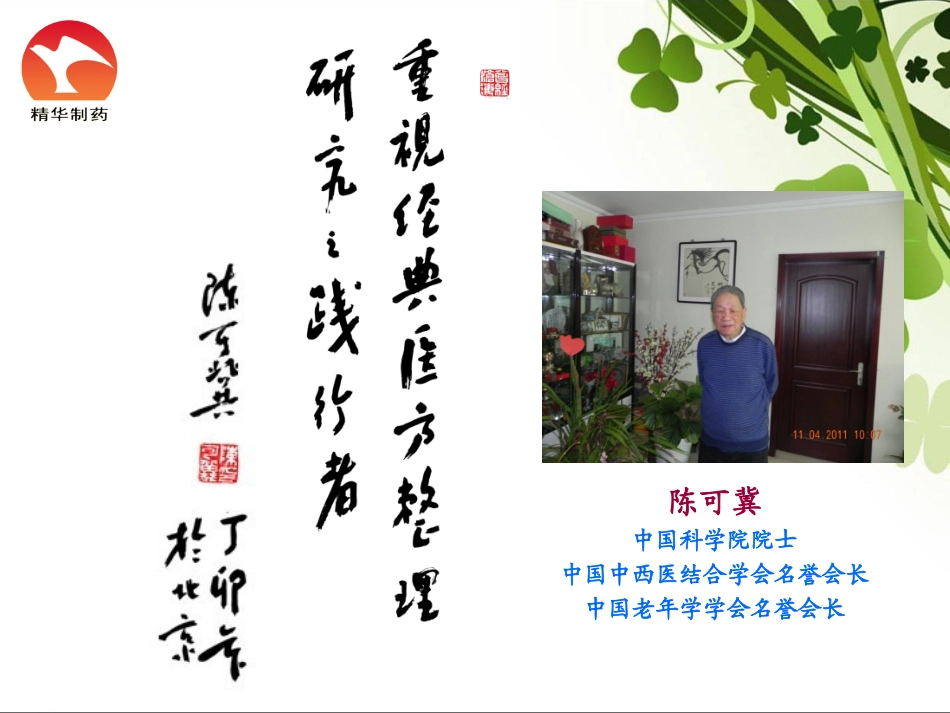 精华制药
重視经典医方整理
研究之践行者
陈可冀
丁卯年
於北京
11.04.2011 10:07
陈可冀
中国科学院院士
中国中西医结合学会名誉会长
中国老年学学会名誉会长